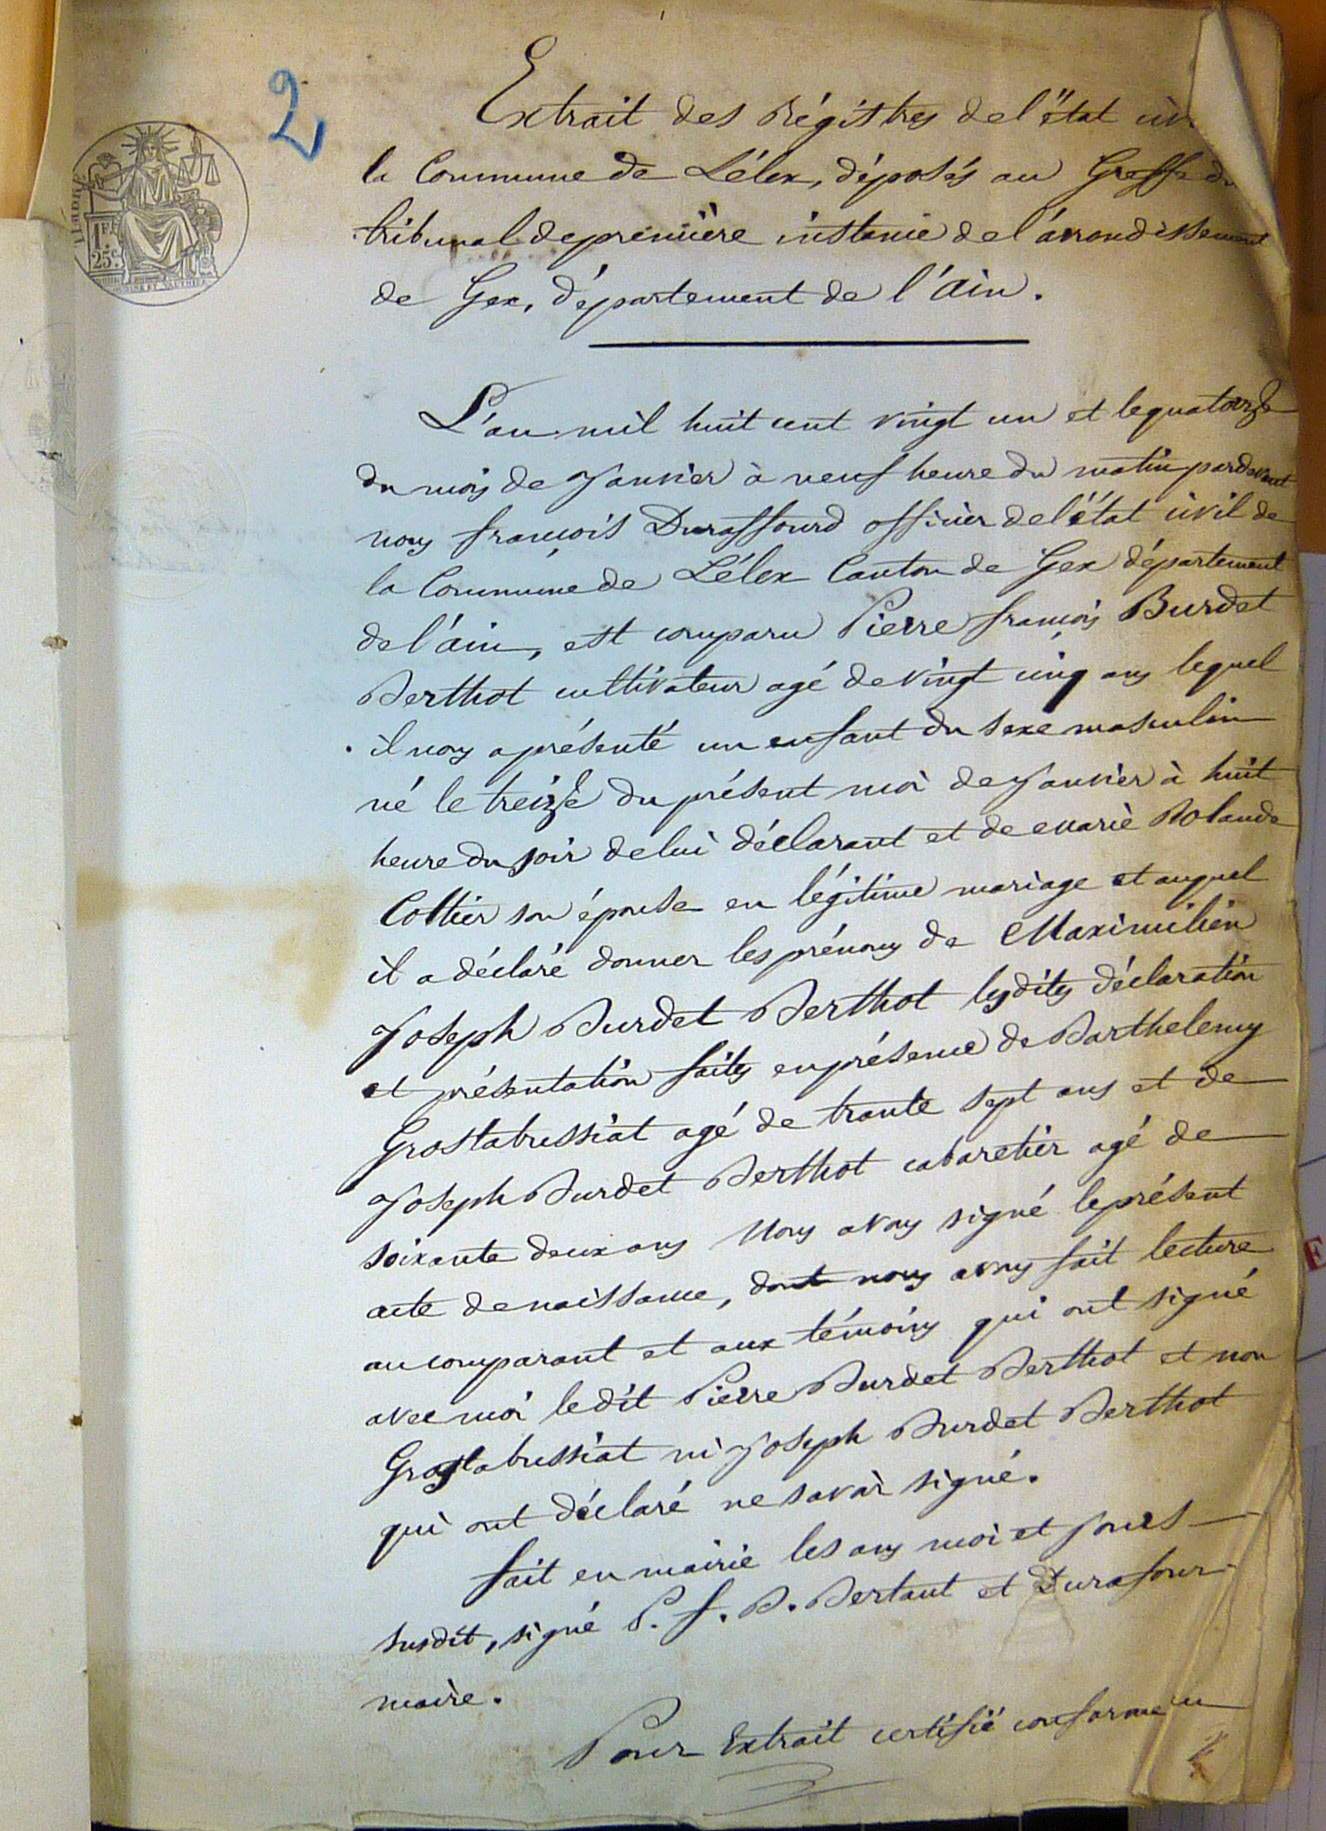 2
1 FR
25 C.
Extrait des Régistres de l'état
la Commune de Lélex, déposés au Greffe du
tribunal de première instance de l'arrondissement
de Gex, département de l'Ain.
L'an mil huit cent vingt un et le quatorze
du mois de Janvier à neuf heure du matin pardevant
nous françois Duraffourd officier de l'état civil de
la Commune de Lélex Canton de Gex département
de l'ain, est comparu Pierre françois Burdet
Berthot cultivateur agé de vingt cinq ans lequel
il nous a présenté un enfant du sexe masculin
né le treize du présent moi de Janvier à huit
heure du soir de lui déclarant et de marie Rolande
Cottier son épouse en légitime mariage et auquel
il a déclaré donner les prénoms de Maximilien
Joseph Burdet Berthot lesdites déclaration
et présentation faites en présence de Barthelemy
Grostabussiat agé de trante sept ans et de
Joseph Burdet Berthot cabaretier agé de
soixante deux ans Nous avons signé le présent
acte de naissance, dont nous avons fait lecture
au comparant et aux témoins qui ont signé
avec moi ledit Pierre Burdet Berthot et non
Grostabussiat ni Joseph Burdet Berthot
qui ont déclaré ne savoir signé.
fait en mairie les ans moi et jours
susdit, signé P. f. B. Bertaut et Durafour
maire.
Pour Extrait certifié conforme